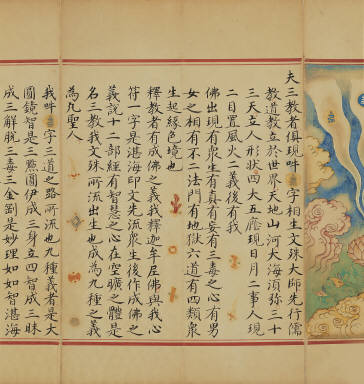 夫三教者俱現吽字相生文殊大師先行儒
教道教立於世界天地山河大海須弥三十
三天立人形狀四大五應現日月二事人現
二目置風火二義後有我
佛出現有衆生有真有妄有三毒之心有男
女之相有不二法門有地獄六道有四類衆
生起緣色境也
釋教者有成佛之義我釋迦牟尼佛與我心
符一字是湛海印文先流衆生後作成佛之
義說十二部經有智慧之心在空曠之體是
名三教我文殊所流出生也成為九種之義
為九聖人
我吽字三道之路所流也九種義者是大
圓鏡智是二㸃圓伊成三身立四智成三昧
成三解脫三毒三金剛是妙理如如智湛海